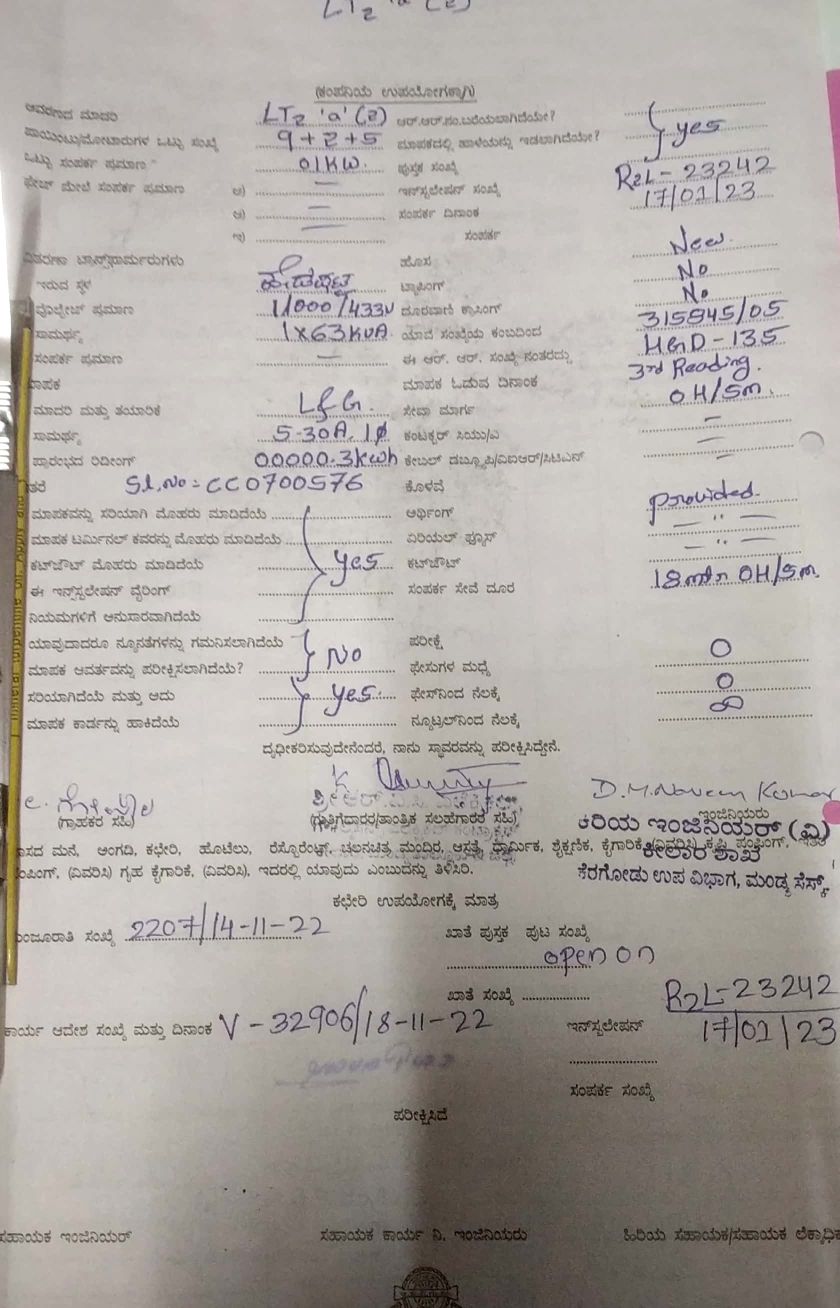 LT2 'a' (2)
(ಕಂಪನಿಯ ಉಪಯೋಗಕ್ಕಾಗಿ)
ಆವರಣದ ಮಾದರಿ LT2 'a' (2) ಆರ್.ಆರ್.ನಂ.ಬರೆಯಲಾಗಿದೆಯೇ?
ಪಾಯಿಂಟು/ಮೋಟಾರುಗಳ ಒಟ್ಟು ಸಂಖ್ಯೆ 9+2+5 ಮಾಪಕದಲ್ಲಿ ಹಾಳೆಯನ್ನು ಇಡಲಾಗಿದೆಯೇ? yes
ಒಟ್ಟು ಸಂಪರ್ಕ ಪ್ರಮಾಣ 01KW. ಪುಸ್ತಕ ಸಂಖ್ಯೆ
ಫೇಸ್ ಮೇಲೆ ಸಂಪರ್ಕ ಪ್ರಮಾಣ ಅ) — ಇನ್‌ಸ್ಟಲೇಷನ್ ಸಂಖ್ಯೆ R2L-23242
ಆ) — ಸಂಪರ್ಕ ದಿನಾಂಕ 17/01/23
ಇ) — ಸಂಪರ್ಕ
ವಿತರಣಾ ಟ್ರಾನ್ಸ್‌ಫಾರ್ಮರುಗಳು ಹೊಸ New.
ಇರುವ ಸ್ಥಳ ಟ್ಯಾಪಿಂಗ್ No
ವೊಲ್ಟೇಜ್ ಪ್ರಮಾಣ 11000/433V ದೂರವಾಣಿ ಕ್ರಾಸಿಂಗ್ No
ಸಾಮರ್ಥ್ಯ 1X63KVA ಯಾವ ಸಂಖ್ಯೆಯ ಕಂಬದಿಂದ 315845/05
ಸಂಪರ್ಕ ಪ್ರಮಾಣ — ಈ ಆರ್. ಆರ್. ಸಂಖ್ಯೆ ನಂತರದ್ದು HGD-135
ಮಾಪಕ ಮಾಪಕ ಓದುವ ದಿನಾಂಕ 3rd Reading.
ಮಾದರಿ ಮತ್ತು ತಯಾರಿಕೆ L&G. ಸೇವಾ ಮಾರ್ಗ OH/Sm.
ಸಾಮರ್ಥ್ಯ 5-30A, 1φ ಕಂಡಕ್ಟರ್ ಸಿಯು/ಎ —
ಪ್ರಾರಂಭದ ರಿಡೀಂಗ್ 00000.3kwh ಕೇಬಲ್ ಡಬ್ಲ್ಯೂಪಿ/ವಿಐಆರ್/ಸಿಟಿಎಸ್ —
ಇತರೆ Sl.No = CC0700576 ಕೊಳವೆ —
ಮಾಪಕವನ್ನು ಸರಿಯಾಗಿ ಮೊಹರು ಮಾಡಿದೆಯೆ ಅರ್ಥಿಂಗ್ provided.
ಮಾಪಕ ಟರ್ಮಿನಲ್ ಕವರನ್ನು ಮೊಹರು ಮಾಡಿದೆಯೆ ಏರಿಯೆಲ್ ಫ್ಯೂಸ್ — " —
ಕಟ್‌ಔಟ್ ಮೊಹರು ಮಾಡಿದೆಯೆ yes ಕಟ್‌ಔಟ್ — " —
ಈ ಇನ್‌ಸ್ಟಲೇಷನ್ ವೈರಿಂಗ್ ಸಂಪರ್ಕ ಸೇವೆ ದೂರ 18mtr OH/Sm
ನಿಯಮಗಳಿಗೆ ಅನುಸಾರವಾಗಿದೆಯೆ
ಯಾವುದಾದರೂ ನ್ಯೂನತೆಗಳನ್ನು ಗಮನಿಸಲಾಗಿದೆಯೆ ಪರೀಕ್ಷೆ
ಮಾಪಕ ಆವರ್ತವನ್ನು ಪರೀಕ್ಷಿಸಲಾಗಿದೆಯೆ? No ಫೇಸುಗಳ ಮಧ್ಯೆ O
ಸರಿಯಾಗಿದೆಯೆ ಮತ್ತು ಅದು yes. ಫೇಸ್‌ನಿಂದ ನೆಲಕ್ಕೆ O
ಮಾಪಕ ಕಾರ್ಡನ್ನು ಹಾಕಿದೆಯೆ ನ್ಯೂಟ್ರಲ್‌ನಿಂದ ನೆಲಕ್ಕೆ ∞
ದೃಢೀಕರಿಸುವುದೇನೆಂದರೆ, ನಾನು ಸ್ಥಾವರವನ್ನು ಪರೀಕ್ಷಿಸಿದ್ದೇನೆ.
D.M.Naveen Kumar
(ಗ್ರಾಹಕರ ಸಹಿ) (ಗುತ್ತಿಗೆದಾರರ/ತಾಂತ್ರಿಕ ಸಲಹೆಗಾರರ ಸಹಿ) ಇಂಜಿನಿಯರು
ಕಿರಿಯ ಇಂಜಿನಿಯರ್ (ವಿ)
ವಾಸದ ಮನೆ, ಅಂಗಡಿ, ಕಛೇರಿ, ಹೋಟೆಲು, ರೆಸ್ಟೋರೆಂಟ್, ಚಲನಚಿತ್ರ ಮಂದಿರ, ಆಸ್ಪತ್ರೆ, ಧಾರ್ಮಿಕ, ಶೈಕ್ಷಣಿಕ, ಕೈಗಾರಿಕೆ (ವಿವರಿಸಿ) ಕೃಷಿ ಪಂಪಿಂಗ್, ಇತರೆ
ಕೀಲಾರ ಶಾಖೆ
ಪಂಪಿಂಗ್, (ವಿವರಿಸಿ) ಗೃಹ ಕೈಗಾರಿಕೆ, (ವಿವರಿಸಿ), ಇದರಲ್ಲಿ ಯಾವುದು ಎಂಬುದನ್ನು ತಿಳಿಸಿರಿ.
ಕೆರಗೋಡು ಉಪ ವಿಭಾಗ, ಮಂಡ್ಯ ಸೆಸ್ಕ್
ಕಛೇರಿ ಉಪಯೋಗಕ್ಕೆ ಮಾತ್ರ
ಮಂಜೂರಾತಿ ಸಂಖ್ಯೆ 2207/14-11-22 ಖಾತೆ ಪುಸ್ತಕ ಪುಟ ಸಂಖ್ಯೆ
open on
ಖಾತೆ ಸಂಖ್ಯೆ R2L-23242
ಕಾರ್ಯ ಆದೇಶ ಸಂಖ್ಯೆ ಮತ್ತು ದಿನಾಂಕ V-32906/18-11-22 ಇನ್‌ಸ್ಟಲೇಷನ್ 17/01/23
ಸಂಪರ್ಕ ಸಂಖ್ಯೆ
ಪರೀಕ್ಷಿಸಿದೆ
ಸಹಾಯಕ ಇಂಜಿನಿಯರ್ ಸಹಾಯಕ ಕಾರ್ಯ ನಿ. ಇಂಜಿನಿಯರು ಹಿರಿಯ ಸಹಾಯಕ/ಸಹಾಯಕ ಲೆಕ್ಕಾಧಿಕ